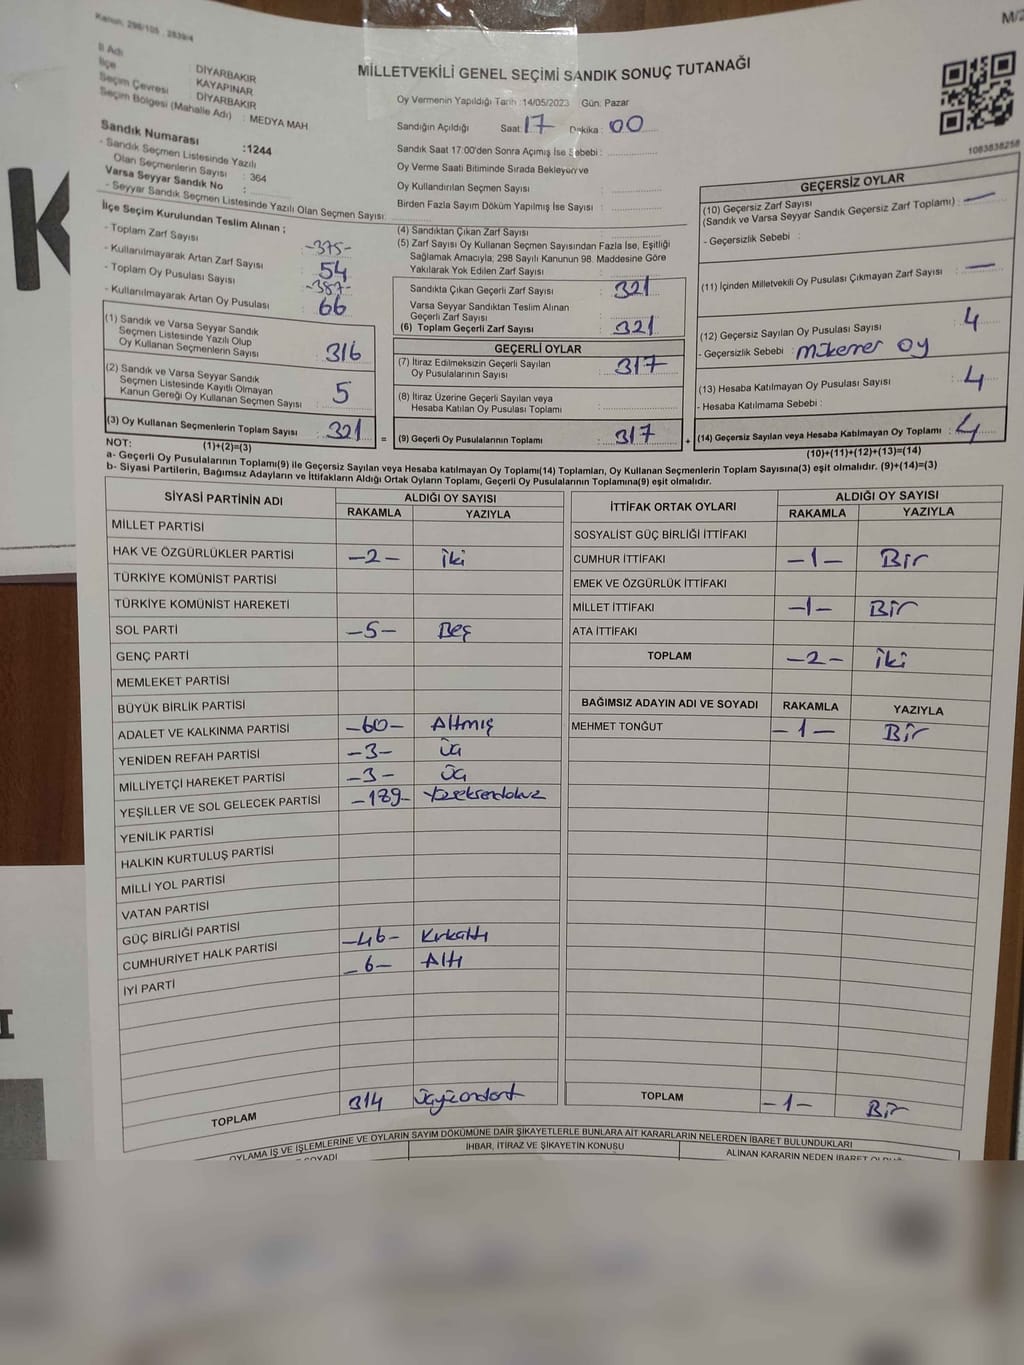 Kanun: 298/105 , 2839/4
M/2
İl Adı : DİYARBAKIR
İlçe : KAYAPINAR
Seçim Çevresi : DİYARBAKIR
Seçim Bölgesi (Mahalle Adı) : MEDYA MAH
MİLLETVEKİLİ GENEL SEÇİMİ SANDIK SONUÇ TUTANAĞI
Oy Vermenin Yapıldığı Tarih :14/05/2023 Gün: Pazar
Sandığın Açıldığı Saat : 17 Dakika : 00
Sandık Saat 17:00'den Sonra Açımış İse Sebebi :
Oy Verme Saati Bitiminde Sırada Bekleyen ve
Oy Kullandırılan Seçmen Sayısı :
Birden Fazla Sayım Döküm Yapılmış İse Sayısı :
1083838258
Sandık Numarası :1244
- Sandık Seçmen Listesinde Yazılı
Olan Seçmenlerin Sayısı : 364
Varsa Seyyar Sandık No :
- Seyyar Sandık Seçmen Listesinde Yazılı Olan Seçmen Sayısı:
İlçe Seçim Kurulundan Teslim Alınan ;
- Toplam Zarf Sayısı -375-
- Kullanılmayarak Artan Zarf Sayısı 54
- Toplam Oy Pusulası Sayısı -387-
- Kullanılmayarak Artan Oy Pusulası 66
(1) Sandık ve Varsa Seyyar Sandık
Seçmen Listesinde Yazılı Olup
Oy Kullanan Seçmenlerin Sayısı 316
(2) Sandık ve Varsa Seyyar Sandık
Seçmen Listesinde Kayıtlı Olmayan
Kanun Gereği Oy Kullanan Seçmen Sayısı 5
(3) Oy Kullanan Seçmenlerin Toplam Sayısı : 321 =
(1)+(2)=(3)
(4) Sandıktan Çıkan Zarf Sayısı :
(5) Zarf Sayısı Oy Kullanan Seçmen Sayısından Fazla İse, Eşitliği
Sağlamak Amacıyla; 298 Sayılı Kanunun 98. Maddesine Göre
Yakılarak Yok Edilen Zarf Sayısı :
Sandıkta Çıkan Geçerli Zarf Sayısı : 321
Varsa Seyyar Sandıktan Teslim Alınan
Geçerli Zarf Sayısı :
(6) Toplam Geçerli Zarf Sayısı : 321
GEÇERLİ OYLAR
(7) İtiraz Edilmeksizin Geçerli Sayılan
Oy Pusulalarının Sayısı : 317
(8) İtiraz Üzerine Geçerli Sayılan veya
Hesaba Katılan Oy Pusulası Toplamı :
(9) Geçerli Oy Pusulalarının Toplamı : 317 +
GEÇERSİZ OYLAR
(10) Geçersiz Zarf Sayısı
(Sandık ve Varsa Seyyar Sandık Geçersiz Zarf Toplamı) : —
- Geçersizlik Sebebi :
(11) İçinden Milletvekili Oy Pusulası Çıkmayan Zarf Sayısı : —
(12) Geçersiz Sayılan Oy Pusulası Sayısı : 4
- Geçersizlik Sebebi : mükerrer oy
(13) Hesaba Katılmayan Oy Pusulası Sayısı : 4
- Hesaba Katılmama Sebebi :
(14) Geçersiz Sayılan veya Hesaba Katılmayan Oy Toplamı : 4
(10)+(11)+(12)+(13)=(14)
NOT:
a- Geçerli Oy Pusulalarının Toplamı(9) ile Geçersiz Sayılan veya Hesaba katılmayan Oy Toplamı(14) Toplamları, Oy Kullanan Seçmenlerin Toplam Sayısına(3) eşit olmalıdır. (9)+(14)=(3)
b- Siyasi Partilerin, Bağımsız Adayların ve İttifakların Aldığı Ortak Oyların Toplamı, Geçerli Oy Pusulalarının Toplamına(9) eşit olmalıdır.
SİYASİ PARTİNİN ADI ALDIĞI OY SAYISI
RAKAMLA YAZIYLA
MİLLET PARTİSİ
HAK VE ÖZGÜRLÜKLER PARTİSİ -2- iki
TÜRKİYE KOMÜNİST PARTİSİ
TÜRKİYE KOMÜNİST HAREKETİ
SOL PARTİ -5- Beş
GENÇ PARTİ
MEMLEKET PARTİSİ
BÜYÜK BİRLİK PARTİSİ
ADALET VE KALKINMA PARTİSİ -60- Altmış
YENİDEN REFAH PARTİSİ -3- üç
MİLLİYETÇİ HAREKET PARTİSİ -3- üç
YEŞİLLER VE SOL GELECEK PARTİSİ -189- yüzseksendokuz
YENİLİK PARTİSİ
HALKIN KURTULUŞ PARTİSİ
MİLLİ YOL PARTİSİ
VATAN PARTİSİ
GÜÇ BİRLİĞİ PARTİSİ
CUMHURİYET HALK PARTİSİ -46- Kırkaltı
İYİ PARTİ -6- Altı
TOPLAM 314 üçyüzondört
İTTİFAK ORTAK OYLARI ALDIĞI OY SAYISI
RAKAMLA YAZIYLA
SOSYALİST GÜÇ BİRLİĞİ İTTİFAKI
CUMHUR İTTİFAKI -1- Bir
EMEK VE ÖZGÜRLÜK İTTİFAKI
MİLLET İTTİFAKI -1- Bir
ATA İTTİFAKI
TOPLAM -2- iki
BAĞIMSIZ ADAYIN ADI VE SOYADI RAKAMLA YAZIYLA
MEHMET TONĞUT -1- Bir
TOPLAM -1- Bir
OYLAMA İŞ VE İŞLEMLERİNE VE OYLARIN SAYIM DÖKÜMÜNE DAİR ŞİKAYETLERLE BUNLARA AİT KARARLARIN NELERDEN İBARET BULUNDUKLARI
SOYADI İHBAR, İTİRAZ VE ŞİKAYETİN KONUSU ALINAN KARARIN NEDEN İBARET
K
I